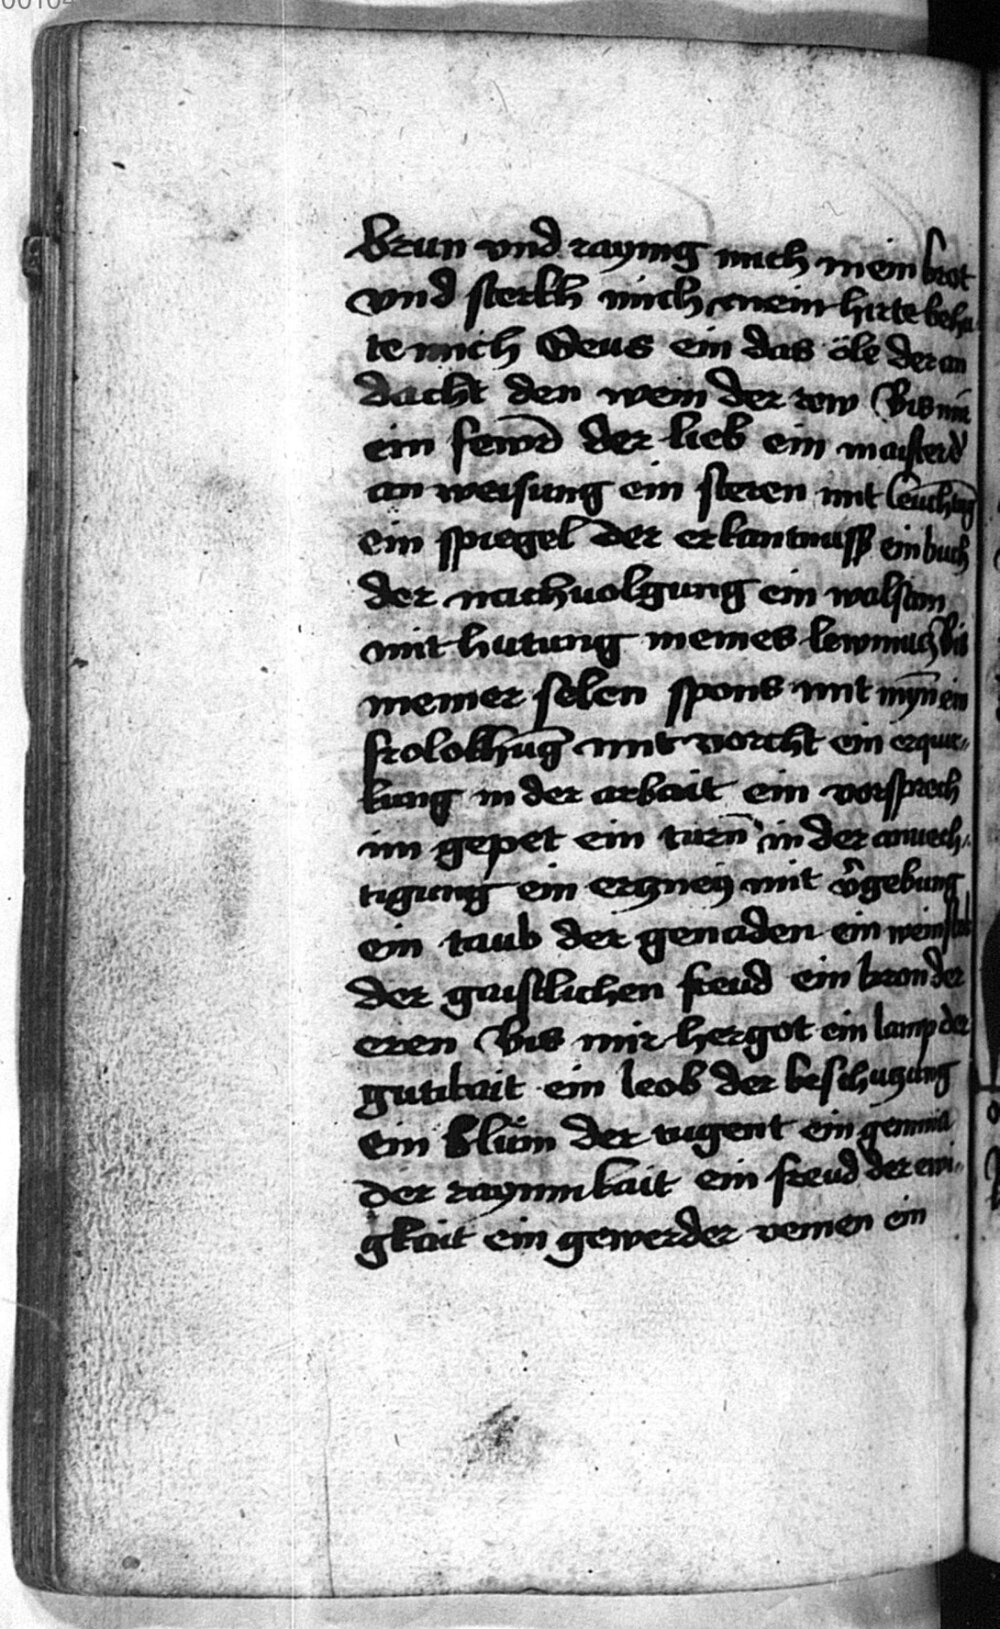 00104
Brun vnd raynig mich mein brot
vnd sterkh mich mein hirte beha
te mich Geus ein das öle der an
dacht den wein der rew Bis mir
ein fewr̄ der lieb ein maister d̕
an weisung ein steren mit leuchtūg
ein spiegel der erkantnuss ein buch
der nachuolgung ein wolstan
mit hutung meines lewnmuᷤ Bis
meiner selen spons mit myn̄ ein
frolokhūg mit vorcht ein erquic⸗
kung in der arbait ein vorsprech
im gepet ein turn̄ in der anuech⸗
tigung ein erczney mit v̕gebung
ein taub der genaden ein weinstok
der gaistlichen freud ein bron der
eren Bis mir hergot ein lamp der
gutikait ein leob der beschuczung
ein Blüm der tugent ein gemma
der raynnikait ein freud der ewi⸗
gkait ein gewerder ein